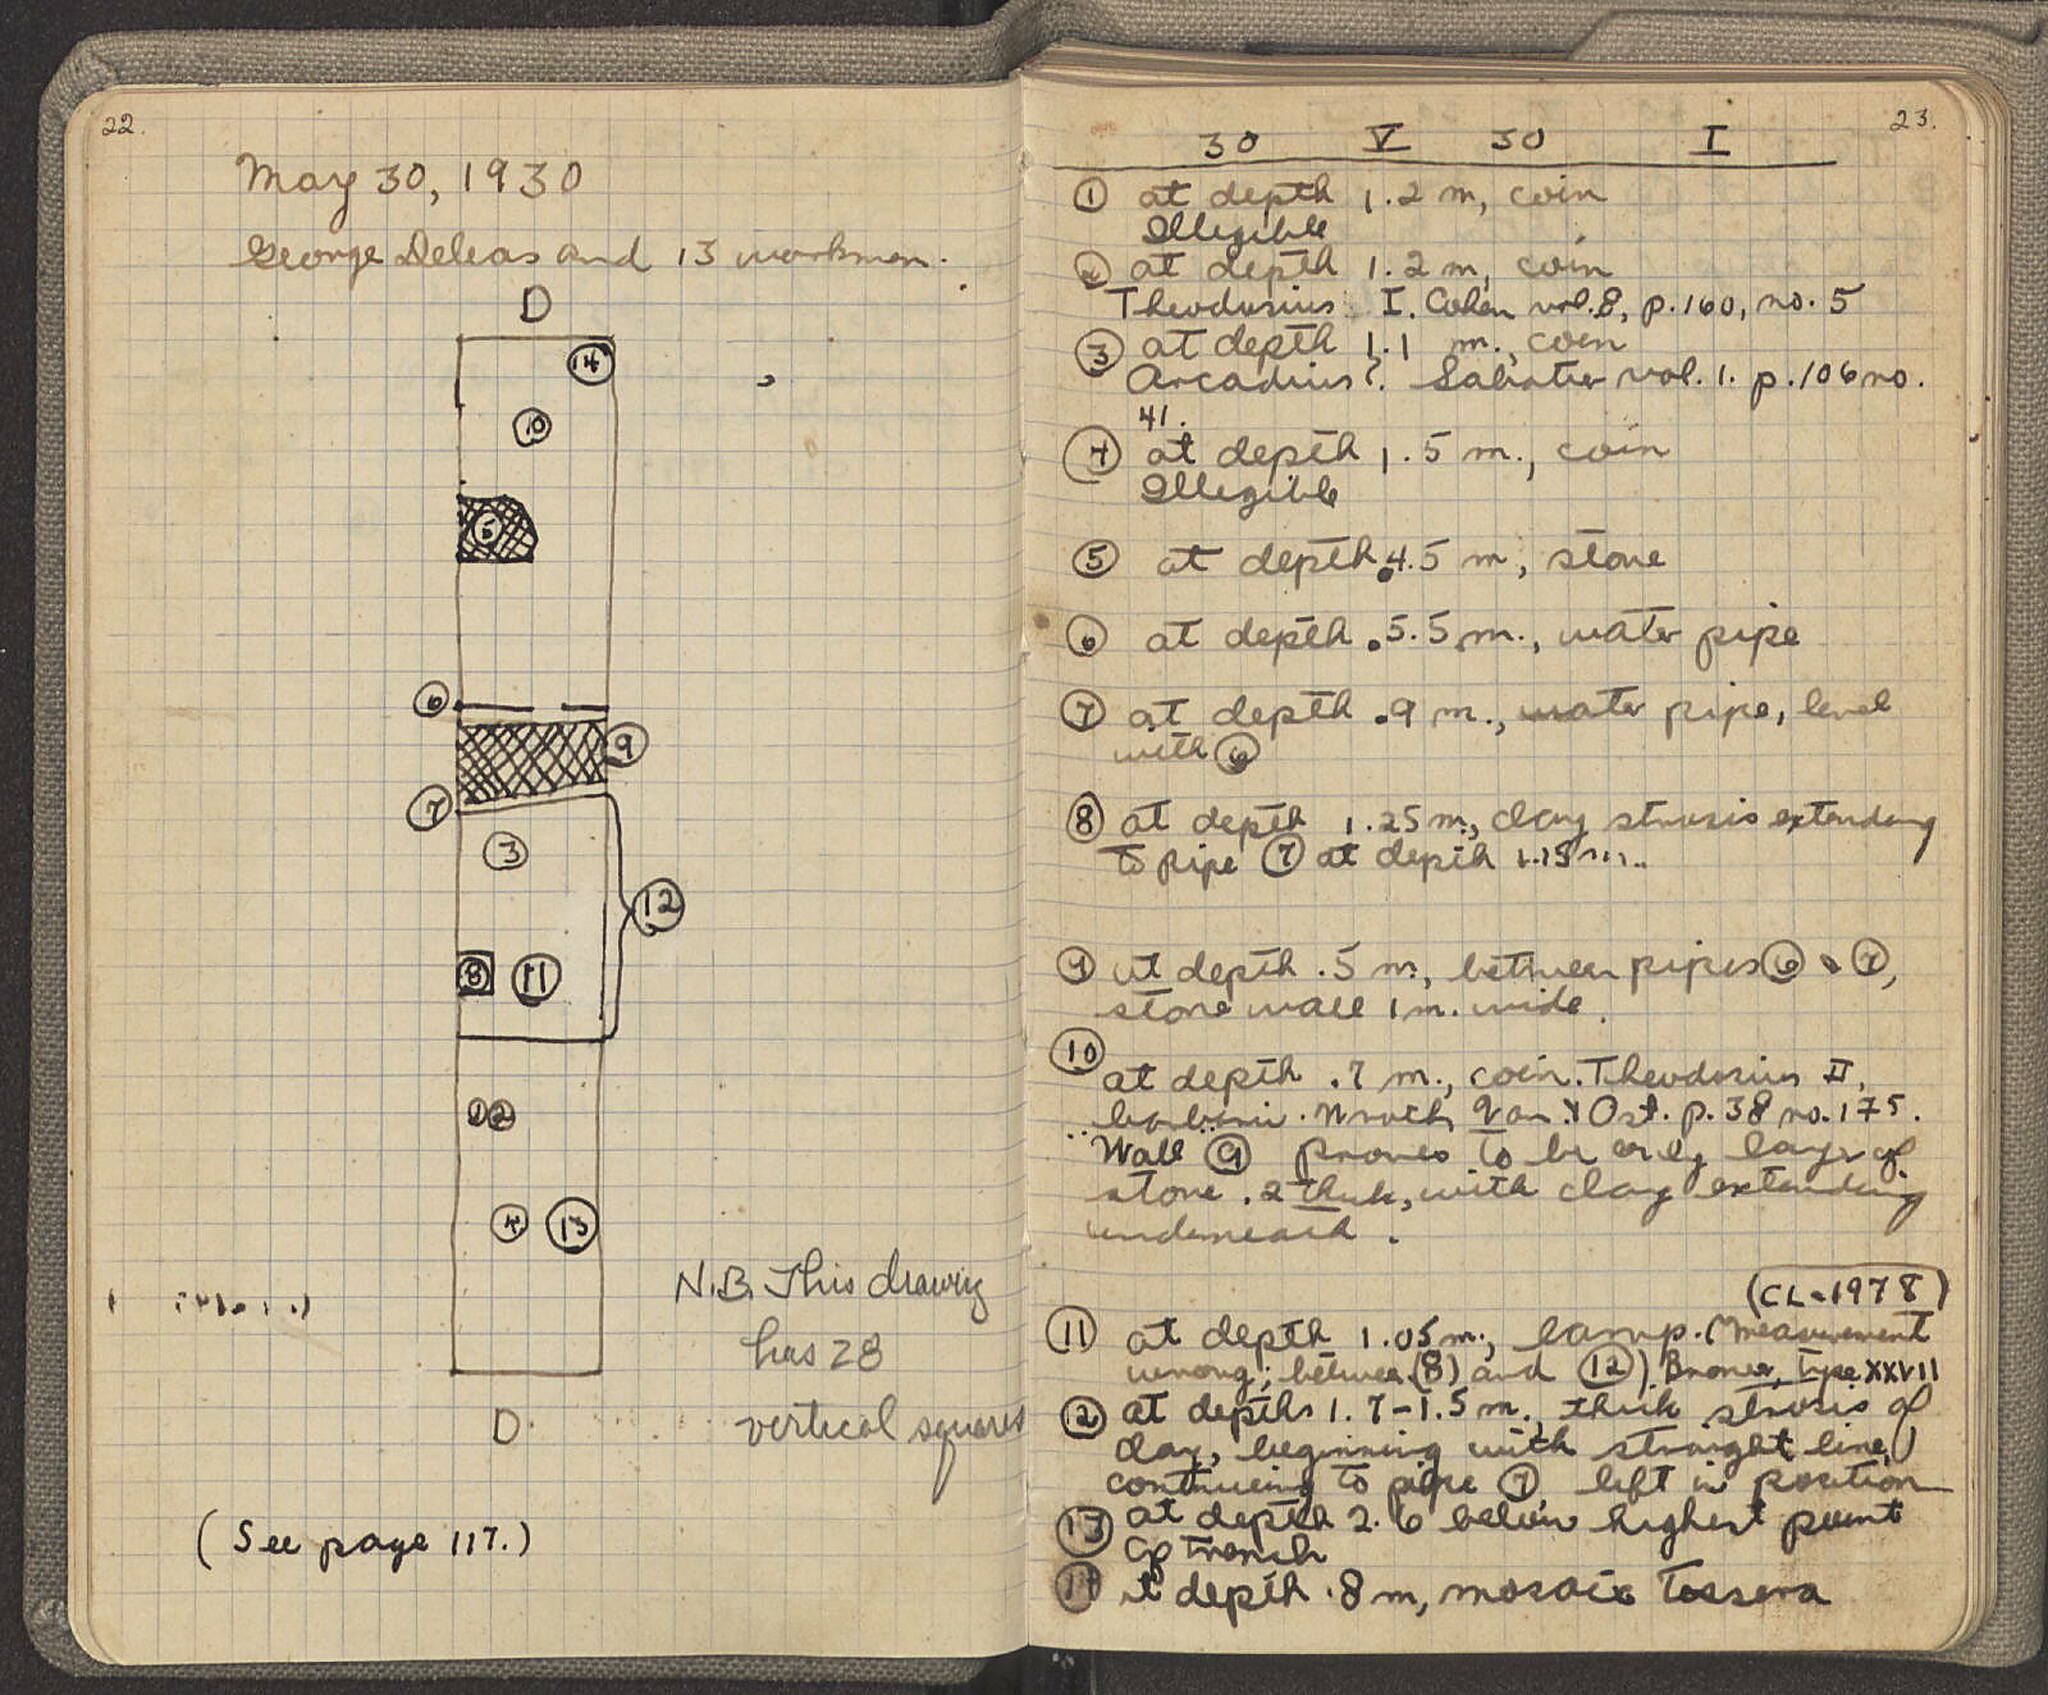 22.
May 30, 1930
George Deleas and 13 workmen.
D
14
10
5
6
9
7
3
12
8 11
1 2
4 13
N.B. This drawing
has 28
vertical squares
D
(See page 117.)
23.
30 V 30 I
1 at depth 1.2 m, coin
Illegible
2 at depth 1.2 m, coin
Theodosius I. Cohen vol. 8, p. 160, no. 5
3 at depth 1.1 m., coin
Arcadius?. Sabatier vol. 1. p. 106 no.
41.
4 at depth 1.5 m., coin
Illegible
5 at depth .4.5 m, stone
6 at depth .5.5 m., water pipe
7 at depth .9 m., water pipe, level
with 6
8 at depth 1.25 m., clay strosis extending
to pipe 7 at depth 1.15 m..
9 at depth .5 m., between pipes 6 & 7,
stone wall 1 m. wide.
10
at depth .7 m., coin. Theodosius II,
Wroth, Van. & Ost. p. 38 no. 175.
Wall 9 proves to be only layer of
stone .2 thick, with clay extending
underneath.
(CL-1978)
11 at depth 1.05 m., lamp. (Measurement
wrong; between (8) and 12). Broneer, Type XXVII
12 at depths 1.7-1.5 m., thick strosis of
clay, beginning with straight line,
continuing to pipe 7, left in position
13 at depth 2.6 below highest point
of trench
14 at depth .8 m, mosaic tessera